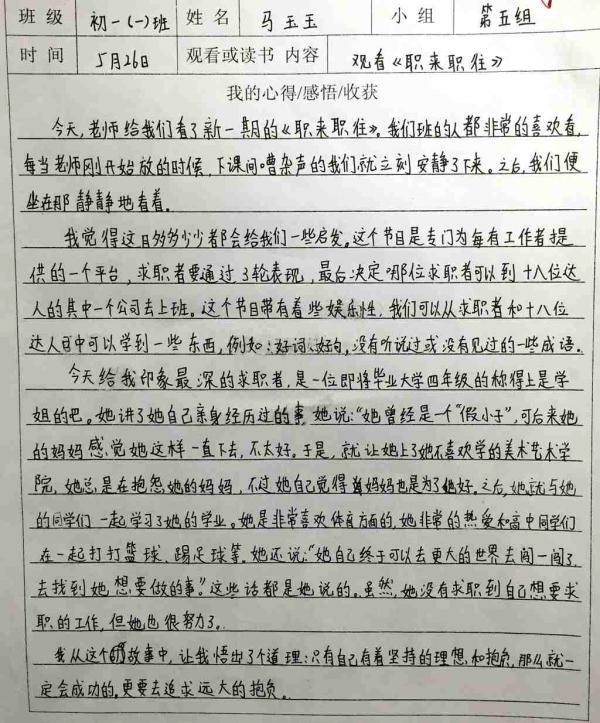 班级 初一(一)班 姓名 马玉玉 小组 第五组
时间 5月26日 观看或读书 内容 观看《职来职往》
我的心得/感悟/收获
今天,老师给我们看了新一期的《职来职往》。我们班的人都非常的喜欢看,
每当老师刚开始放的时候,下课间嘈杂声的我们就立刻安静了下来。之后,我们便
坐在那静静地看着。
我觉得这目多多少少都会给我们一些启发。这个节目是专门为每有工作者提
供的一个平台,求职者要通过3轮表现,最后决定哪位求职者可以到十八位达
人的其中一个公司去上班。这个节目带有着些娱乐性,我们可以从求职者和十八位
达人中可以学到一些东西,例如:好词、好句,没有听说过或没有见过的一些成语。
今天给我印象最深的求职者,是一位即将毕业大学四年级的称得上是学
姐的吧。她讲了她自己亲身经历过的事,她说:“她曾经是一个“假小子”,可后来她
的妈妈感觉她这样一直下去,不太好。于是,就让她上了她不喜欢学的美术艺术学
院,她总是在抱怨她的妈妈,不过她自己觉得妈妈也是为了她好。之后,她就与她
的同学们一起学习了她的学业。她是非常喜欢体育方面的,她非常的热爱和高中同学们
在一起打打篮球、踢足球等。她还说:“她自己终于可以去更大的世界去闯一闯了,
去找到她想要做的事。”这些话都是她说的。虽然,她没有求职到自己想要求
职的工作,但她也很努力了。
我从这个的故事中,让我悟出了个道理:只有自己有着坚持的理想和抱负,那么就一
定会成功的,更要去追求远大的抱负。